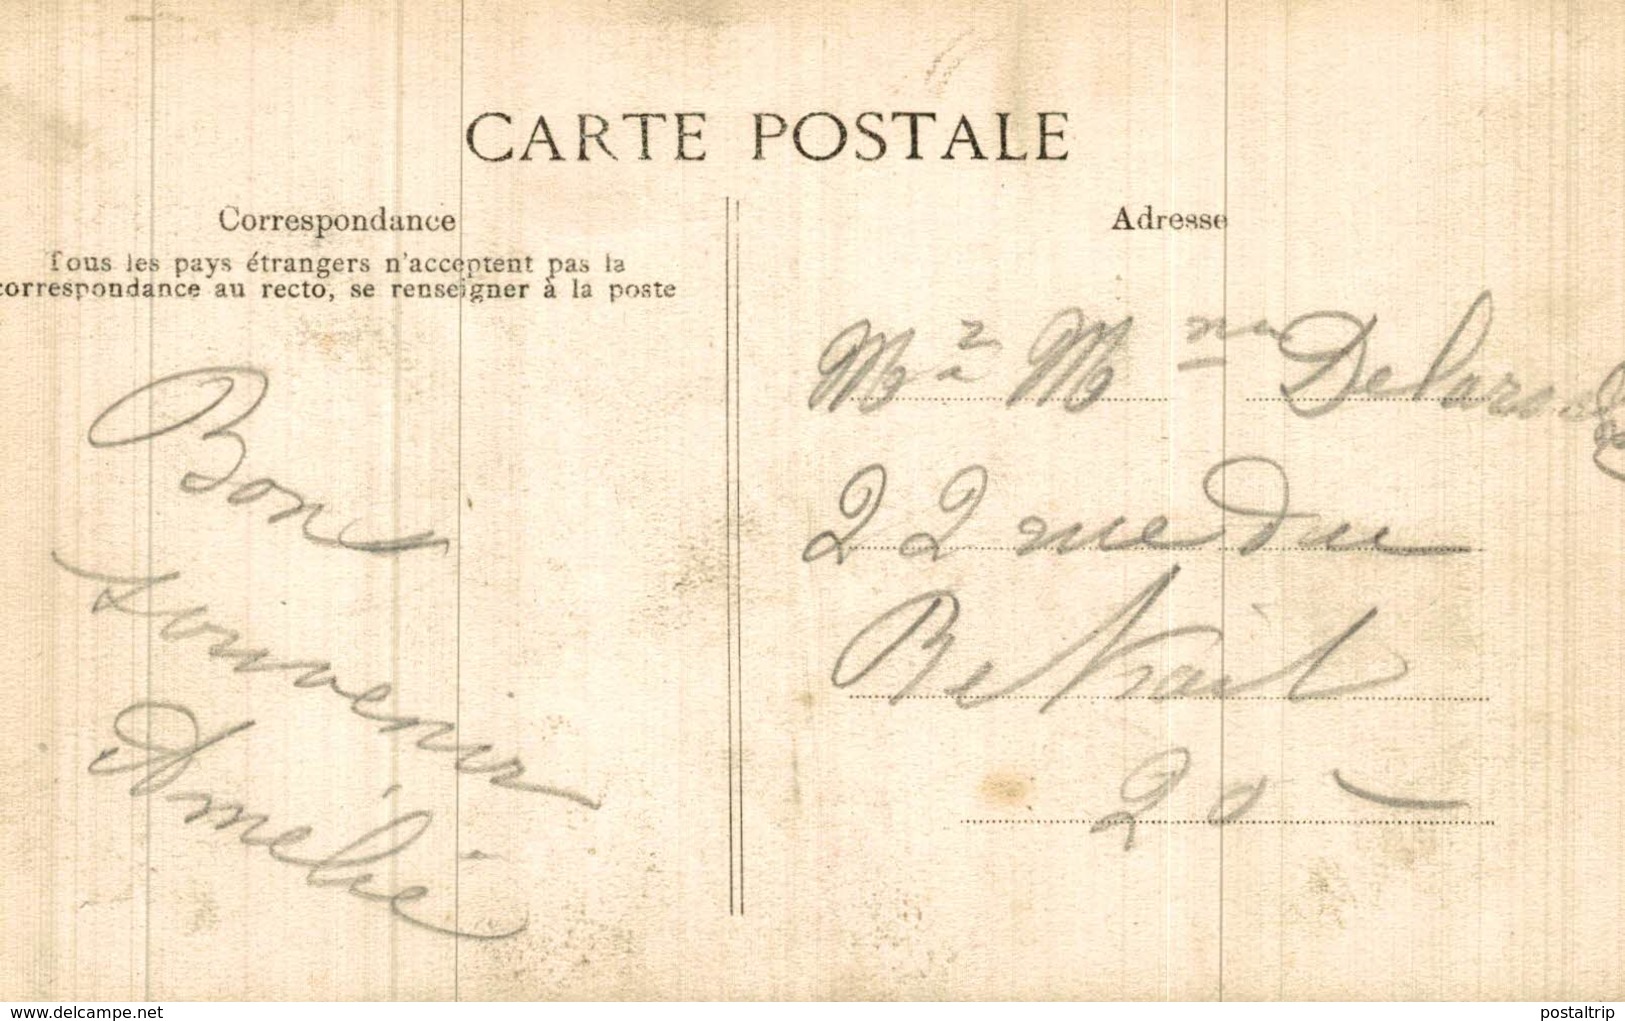 CARTE POSTALE
Correspondance
Tous les pays étrangers n'acceptent pas la
correspondance au recto, se renseigner à la poste
Bon
souvenir
Amélie
Adresse
Mr Mme
22 rue du
Retrait
20
www.delcampe.net
postaltrip